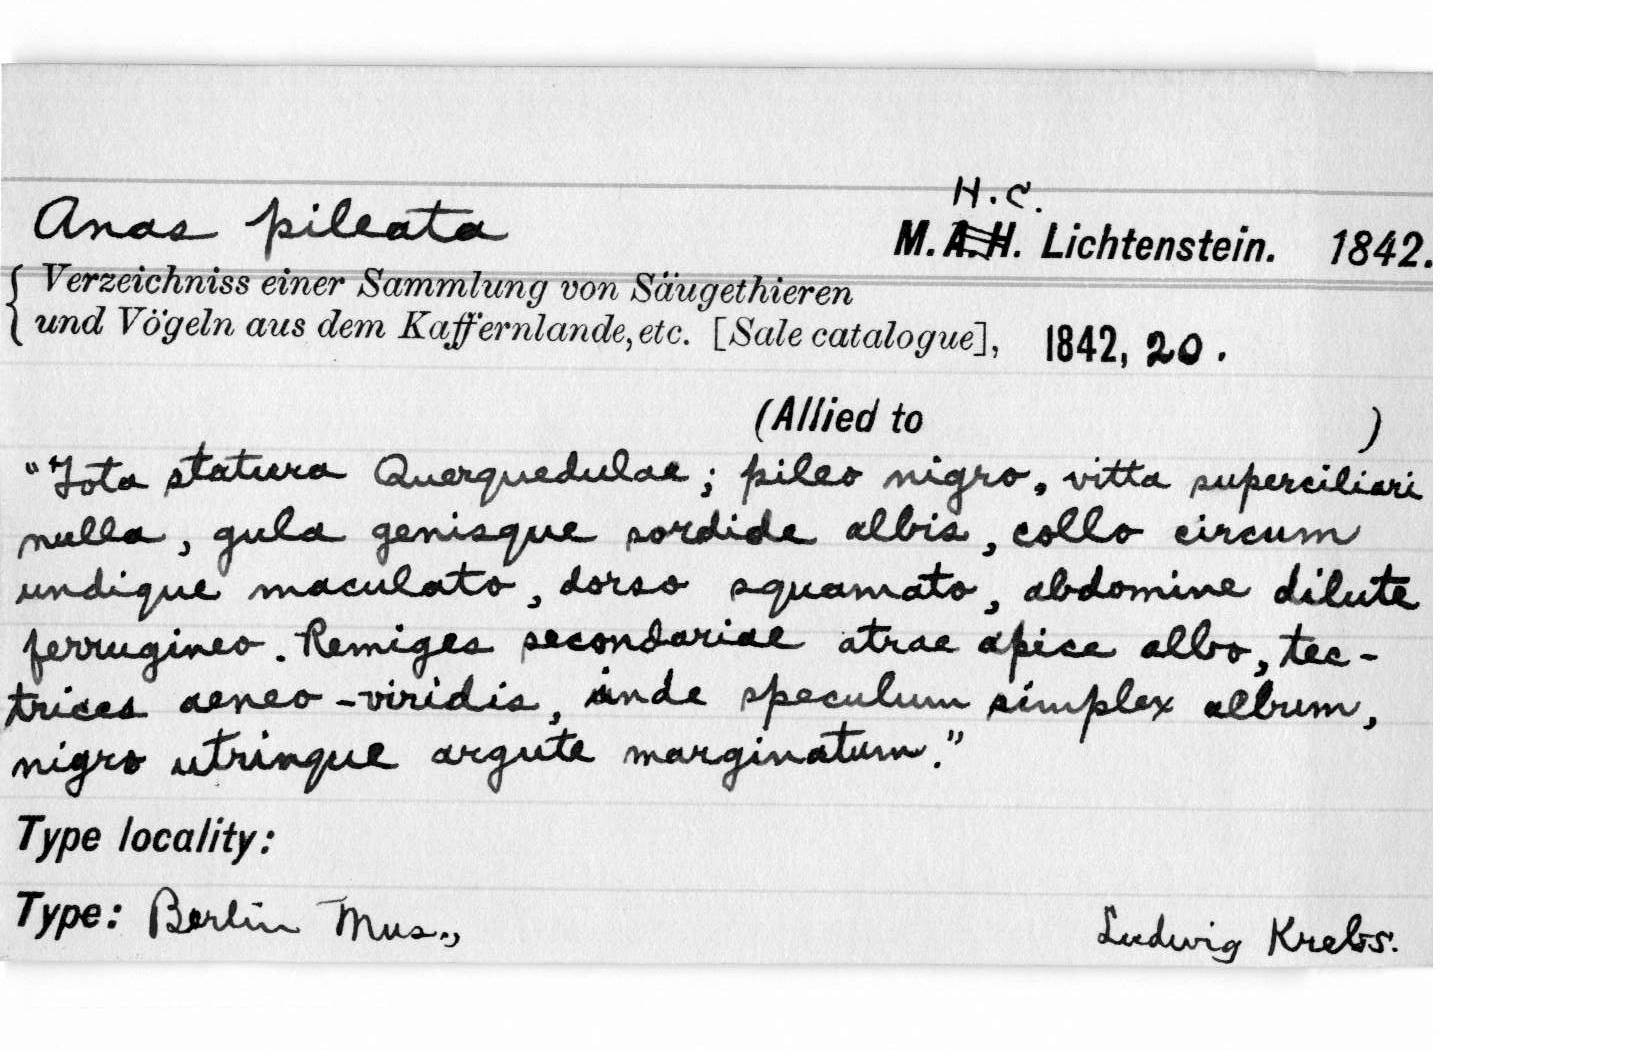 H.C.
Anas pileata M. A.H. Lichtenstein. 1842.
Verzeichniss einer Sammlung von Säugethieren
und Vögeln aus dem Kaffernlande, etc. [Sale catalogue], 1842, 20.
(Allied to )
"Tota statura Querquedulae; pileo nigro, vitta superciliari
nulla, gula genisque sordide albis, collo circum
undique maculato, dorso squamato, abdomine dilute
ferrugineo. Remiges secondariae atrae apice albo, tec-
trices aeneo-viridis, unde speculum simplex album,
nigro utrinque argute marginatum."
Type locality:
Type: Berlin Mus., Ludwig Krebs.